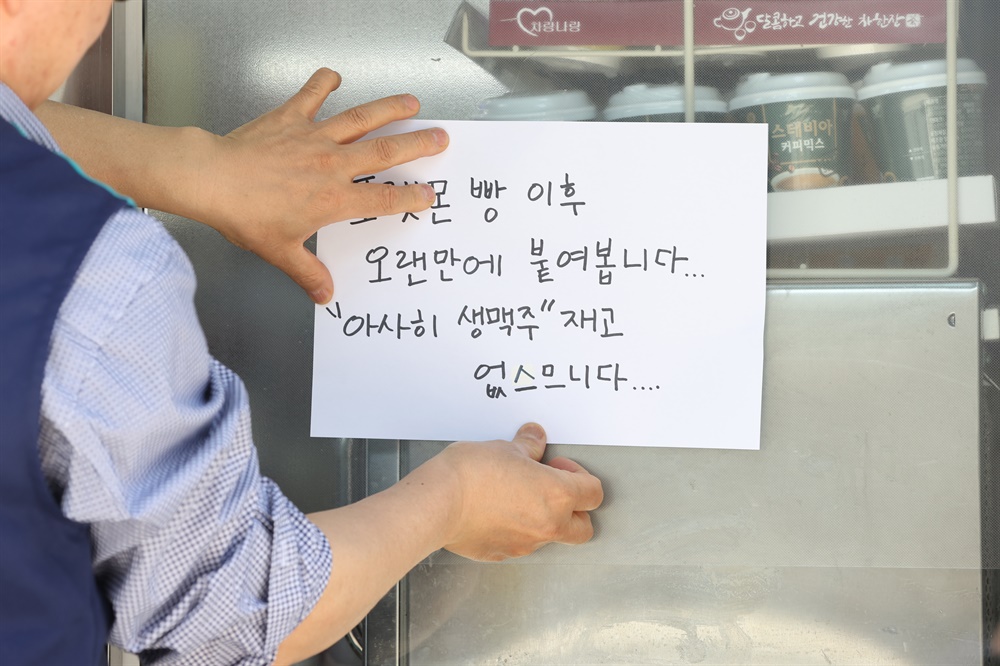 차랑나랑
달콤하고 건강한 차 한잔
스테비아
커피믹스
포켓몬 빵 이후
오랜만에 붙여봅니다...
"아사히 생맥주" 재고
없스므니다....